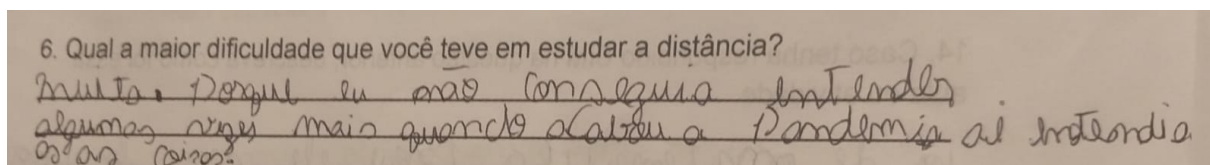 6. Qual a maior dificuldade que você teve em estudar a distância?
muito. Porque eu não conseguia entender
algumas vezes mais quando acabou a Pandemia ai
as coisas